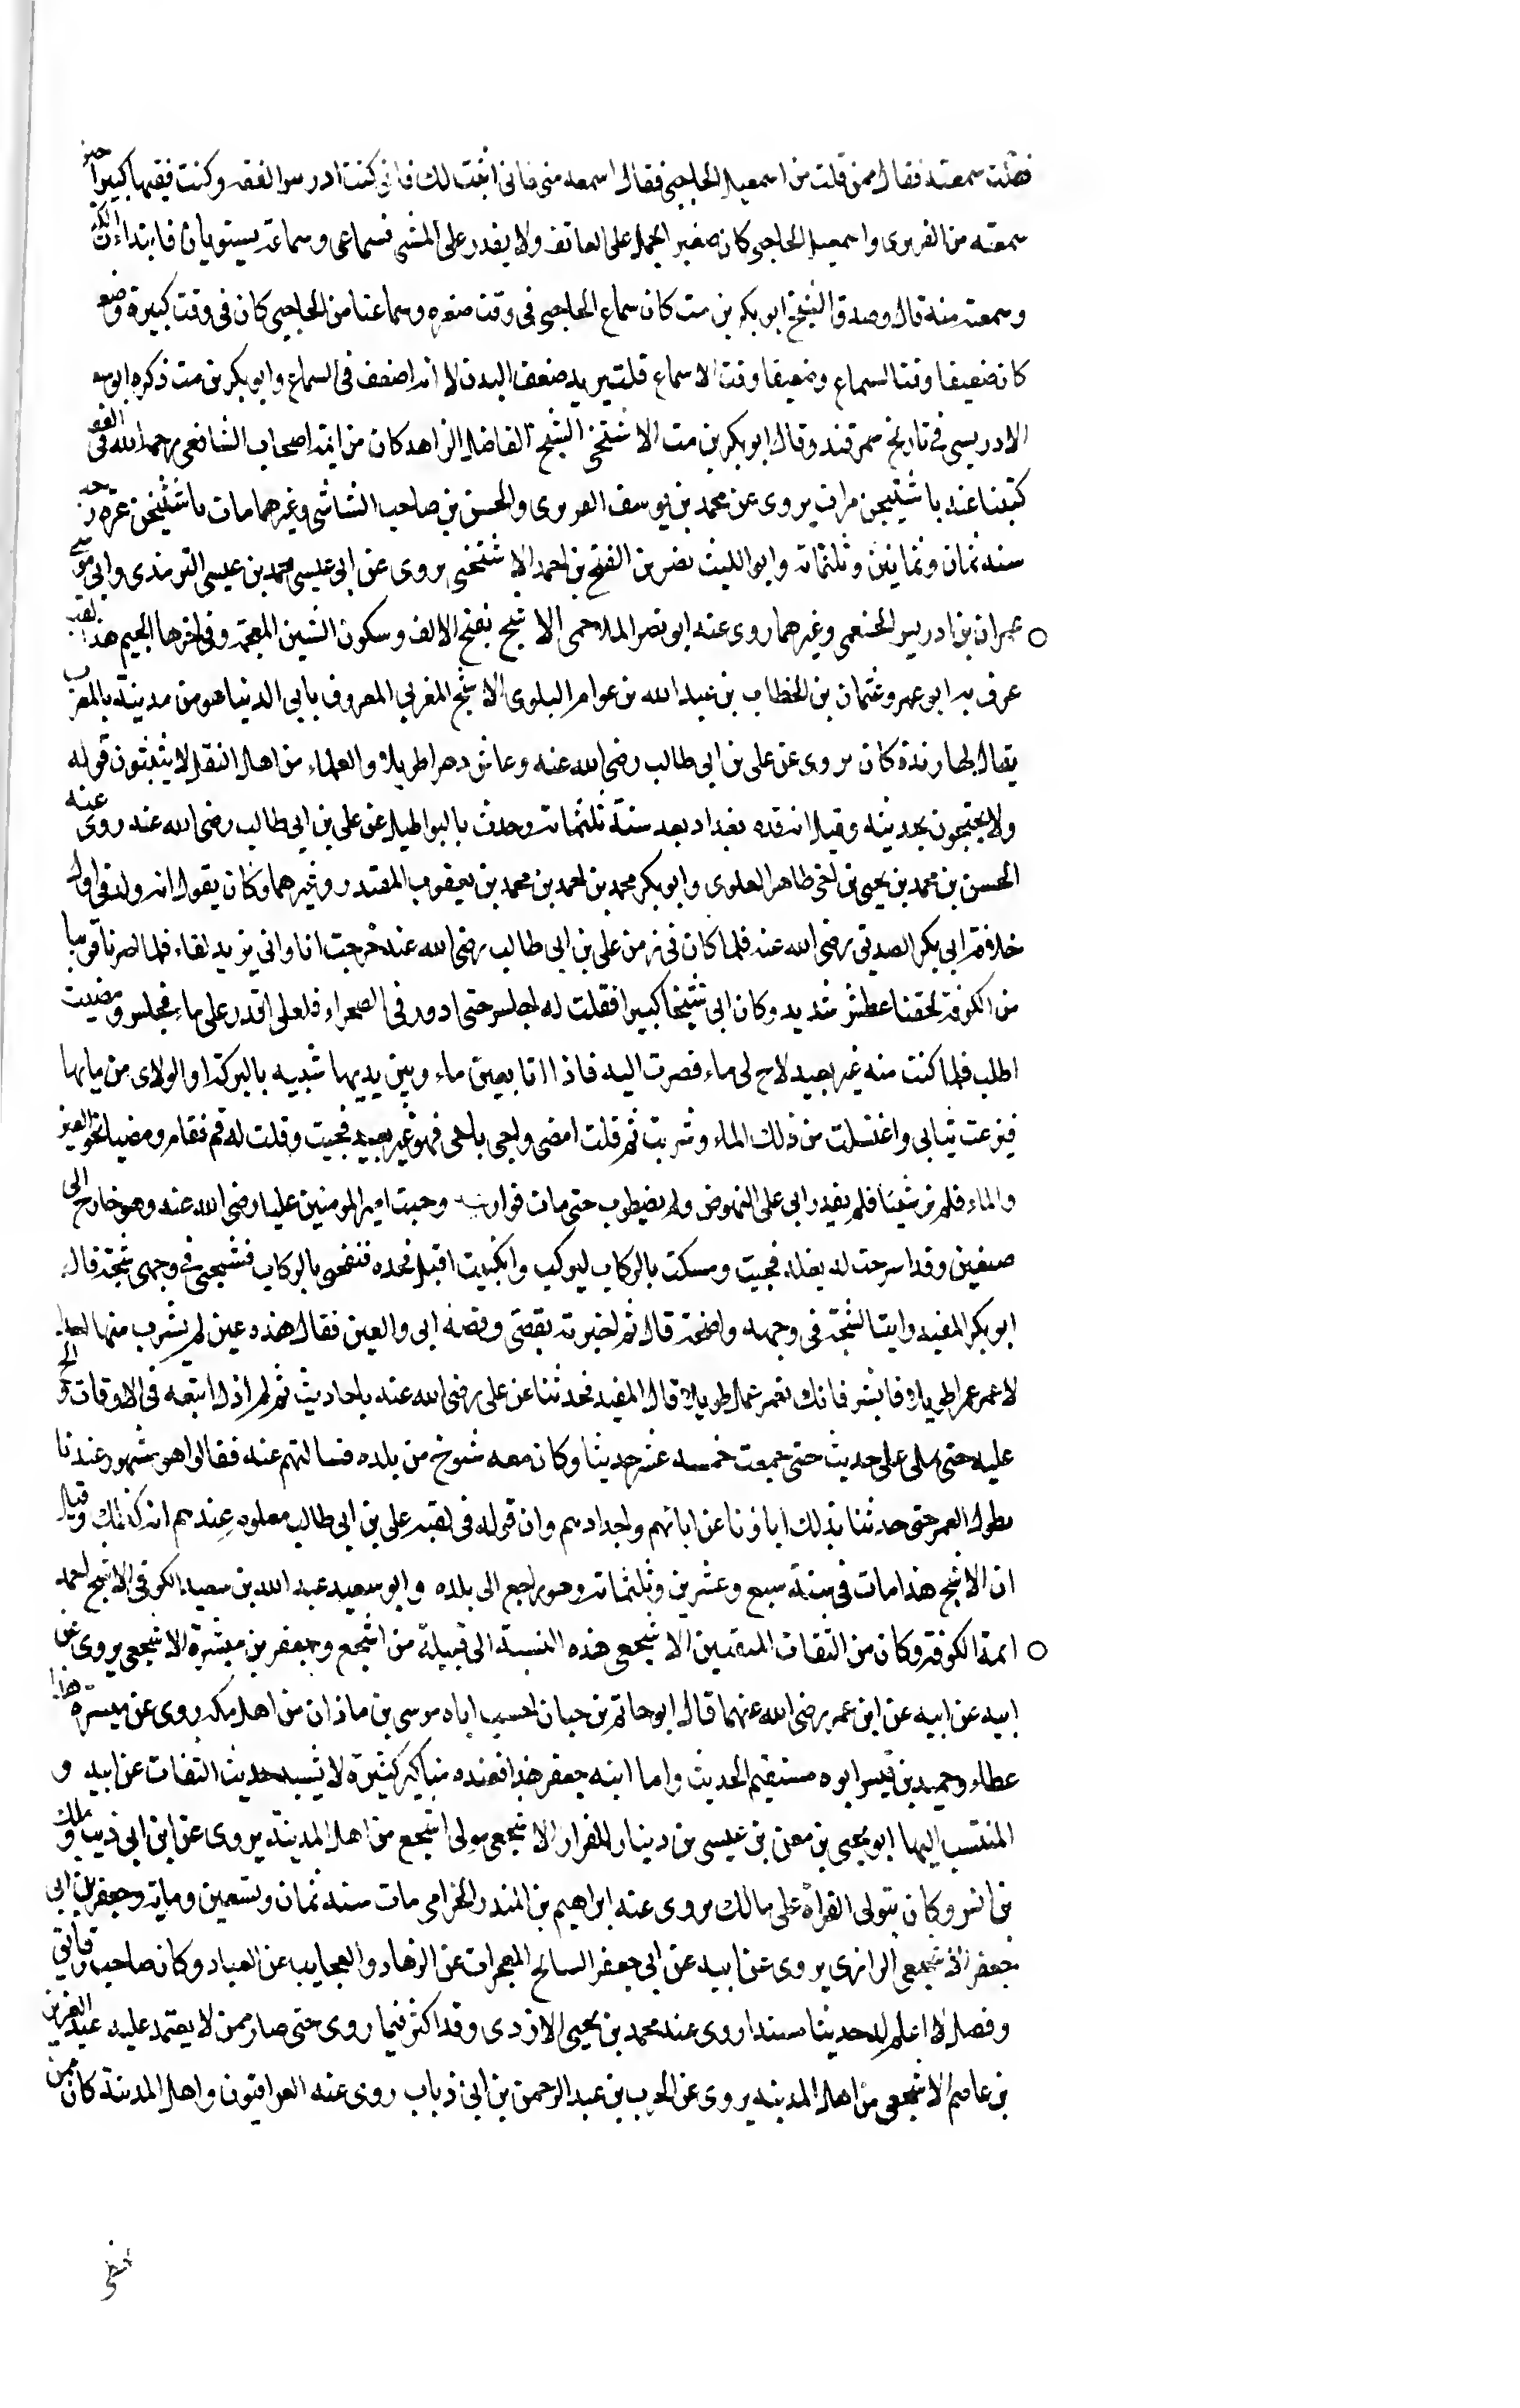 فقلت سمعته فقال ممن قلت من اسمعيل الحاجبى فقال اسمعه منى فانى اثبت لك فانى كنت ادرس الفقه وكنت فقيها كبيرا حين
سمعته من الفربرى واسمعيل الحاجبى كان صغير الحمل على العاتق ولا يقدر على المشى فسماعى وسماعه يستويان فابتداءت الكتاب
وسمعته منه قال وصدق الشيخ ابو بكر بن مت كان سماع الحاجبى فى وقت صغره وسماعنا من الحاجبى كان فى وقت كبيرة وضع
كان ضعيفا وقت السماع وضعيفا وقت الاسماع قلت يريد ضعف البدن لا انه اضعف فى السماع وابو بكر بن مت ذكره ابو سعد
الادريسى فى تاريخ سمرقند وقال ابو بكر بن مت الاشتيخنى الشيخ الفاضل الزاهد كان من ائمة اصحاب الشافعى رحمه الله فى الفقه
كتبنا عنه باشتيخن مرات يروى عن محمد بن يوسف الفربرى والحسن بن صاحب الشاشى وغيرهما مات باشتيخن غرة رجب
سنة ثمان وثمانين وثلثمائة وابو الليث نصر بن الفتح بن احمد الاشتيخنى يروى عن ابى عيسى محمد بن عيسى الترمذى وابى موسى
عمران بن ادريس الختعمى وغيرهما روى عنه ابو نصر الملاحمى الاشج بفتح الالف وسكون الشين المعجمة وفى اخرها الجيم هذا لقب
عرف به ابو عمرو عثمان بن الخطاب بن عبد الله بن عوام البلوى الاشج المغربى المعروف بابى الدنيا هو من مدينة بالمغرب
يقال لها رندة كان يروى عن على بن ابى طالب رضى الله عنه وعاش دهرا طويلا والعلماء من اهل النقل لا يثبتون قوله
ولا يحتجون بحديثه وقيل انه قدم بغداد بعد سنة ثلثمائة وحدث بالبواطيل عن على بن ابى طالب رضى الله عنه روى عنه
الحسن بن محمد بن يحيى بن اخى طاهر العلوى وابو بكر محمد بن احمد بن محمد بن يعقوب المفيد وغيرهما وكان يقول انه ولد فى اول
خلافة ابى بكر الصديق رضى الله عنه فلما كان فى زمن على بن ابى طالب رضى الله عنه خرجت انا وابى نريد لقاءه فلما صرنا قريبا
من الكوفة لحقنا عطش شديد وكان ابى شيخا كبيرا فقلت له اجلس حتى ادور فى الصحراء فلعلى اقدر على ماء فجلس ومضيت
اطلب فلما كنت منه غير بعيد لاح لى ماء فصرت اليه فاذا انا بعين ماء وبين يديها شبيه بالبركة او الوادى من مايها
فنزعت ثيابى واغتسلت من ذلك الماء وشربت ثم قلت امضى واجى بابى فهو غير بعيد فجيت وقلت له قم فقام ومضينا نحو العين
والماء فلم نر شيئا فلم يقدر ابى على النهوض ولم يضطرب حتى مات فواريته وجيت امير المومنين عليا رضى الله عنه وهو خارج الى
صفين وقد اسرحت له بغلة فجيت ومسكت بالركاب ليركب وانكبيت اقبل فخده فنفحنى بالركاب فشجنى فى وجهى شجة قال
ابو بكر المفيد ورايت الشجة فى وجهه واضحة قال ثم اخبرته بقصتى وقصة ابى والعين فقال هذه عين لم يشرب منها احد الا
عمر عمرا طويلا فابشر فانك تعمر عمرا طويلا قال المفيد فحدثنا عن على رضى الله عنه باحاديث ثم لم ازل اتبعه فى الاوقات والح
عليه حتى يملى على حديث حتى جمعت خمسة عشر حديثا وكان معه شيوخ من بلده فسالتهم عنه فقالوا هو مشهور عندنا
بطول العمر حتى حدثنا بذلك اباؤنا عن ابائهم واجدادهم وان قوله فى لقيه على بن ابى طالب معلوم عندهم انه كذلك وقيل
ان الاشج هذا مات فى سنة سبع وعشرين وثلثمائة وهو راجع الى بلده وابو سعيد عبد الله بن سعيد الكوفى الاشج احد
ائمة الكوفة وكان من الثقات المتقنين الاشجعى هذه النسبة الى قبيلة من اشجع وجعفر بن ميسرة الاشجعى يروى عن
ابيه عن ابيه عن ابن عمر رضى الله عنهما قال ابو حاتم بن حبان احسب اباه موسى بن ماذان من اهل مكة روى عن ميسرة هذا
عطاء وحميد بن قيس ابوه مستقيم الحديث واما ابنه جعفر هذا فعنده مناكير كثيرة لا تشبه حديث الثقات عن ابيه و
المنتسب اليها ابو يحيى بن معن بن عيسى بن دينار القزاز الاشجعى مولى اشجع من اهل المدينة يروى عن ابن ابى ذيب وملك
بن انس وكان يتولى القراة على مالك يروى عنه ابراهيم بن المنذر الحزامى مات سنة ثمان وتسعين وماية وجعفر بن ابى
جعفر الاشجعى الرازى يروى عن ابيه عن ابى جعفر السائح المعجزات عن الزهاد والعجايب عن العباد وكان صاحب رقايق
وفضل لا اعلم له حديثا مسندا روى عنه محمد بن يحيى الازدى وقد اكثر فيما روى حتى صار ممن لا يعتمد عليه عبد العزيز
بن عاصم الاشجعى من اهل المدينة يروى عن الحرب بن عبد الرحمن بن ابى ذباب روى عنه العراقيون واهل المدينة كان ممن